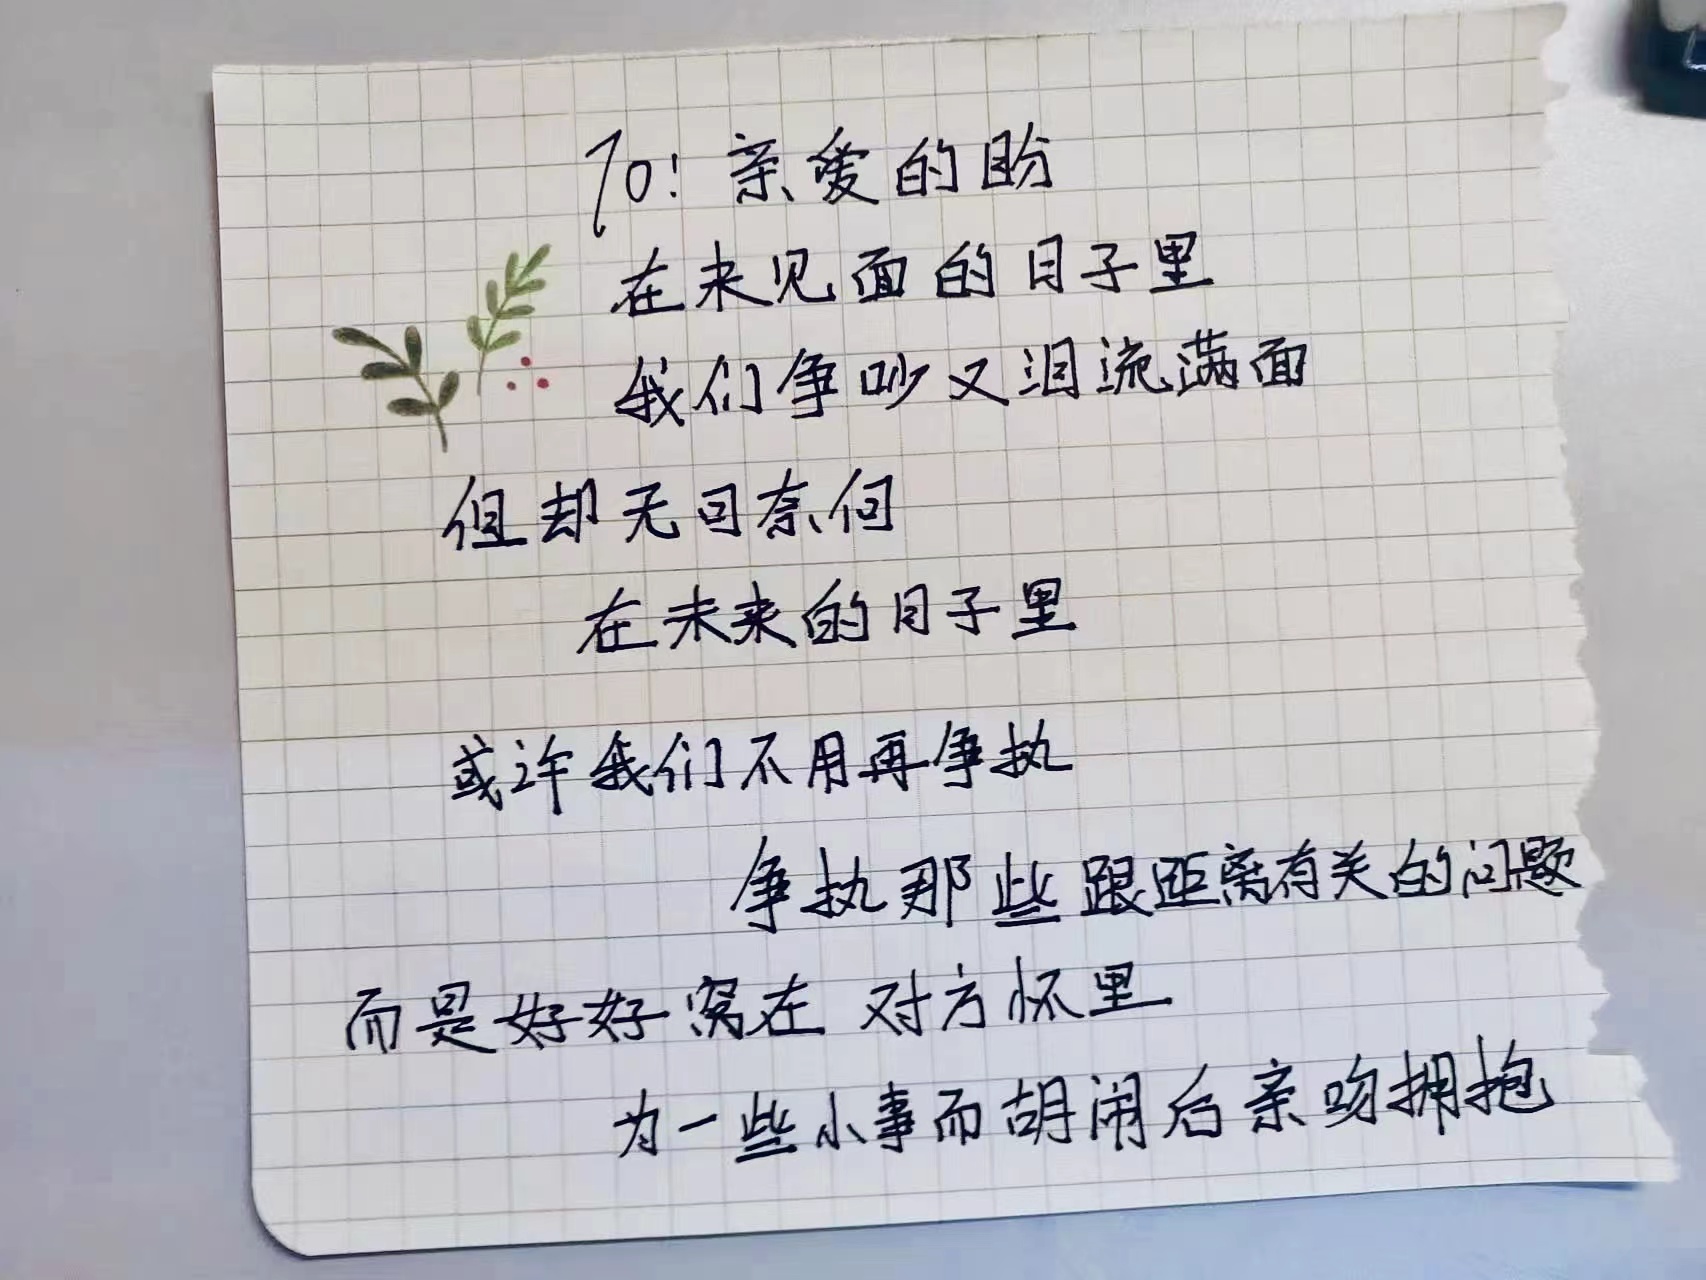 To: 亲爱的盼
在未见面的日子里
我们争吵又泪流满面
但却无可奈何
在未来的日子里
或许我们不用再争执
争执那些跟距离有关的问题
而是好好窝在对方怀里
为一些小事而胡闹后亲吻拥抱